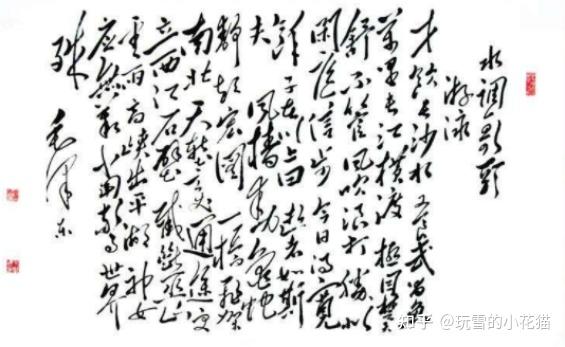 水调歌头
游泳
才饮长沙水 又食武昌鱼
万里长江横渡 极目楚天
舒 不管风吹浪打 胜似
闲庭信步 今日得宽
馀 子在川上曰 逝者如斯
夫 风樯动 龟蛇
静 起宏图 一桥飞架
南北 天堑变通途 更
立西江石壁 截断巫山
云雨 高峡出平湖 神女
应无恙 当惊世界
殊
毛泽东
知乎 @玩雪的小花猫